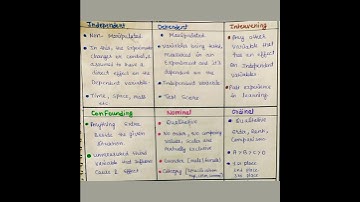 Independent
• Non-Manipulated
• In this, the experimenter
changes or
assumed to have a
direct effect on the
dependent variable.
• Time, Space,
etc.
Dependent
• Manipulated
• Variables being
in an
Experiment and it's
dependent on the
Independent Variable
• Test Score
Intervening
• Any other
Variable that
has an effect
on Independent
Variables
• Past experience
in learning.
Confounding
• Anything Extra
Beside the given
Situation.
• Unmeasured third
Variable that Influence
Cause & Effect
Nominal
• Qualitative
• No order,
Mutually exclusive
• Gender (Male/Female)
• Category
Ordinal
• Qualitative
• Order, Rank,
Comparison
• A > B > C > D
• 1st place
2nd place
3rd place